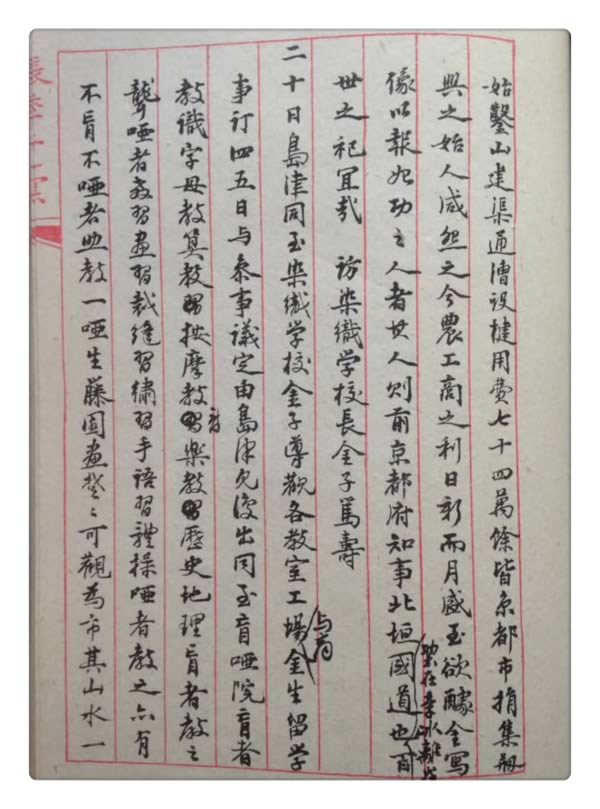 始鑿山建渠通漕設楗用費七十四萬餘皆京都市捐集刱
興之始人咸怨之今農工商之利日新而月盛至欲醵金寫
像以報功之人者其人則前京都府知事北垣國道也百
在李冰離
世之祀宜哉 訪染織学校長金子篤壽
二十日島津同至染織学校金子導觀各教室工場金生留学
与前
事订四五日与參事議定由島津允後出同至盲啞院盲者
教識字母教算教按摩教音樂教歷史地理盲者教之
聾啞者教習畫習裁縫習繡習手語習體操啞者教之亦有
不盲不啞者助教一啞生藤園畫楚〻可觀為市其山水一